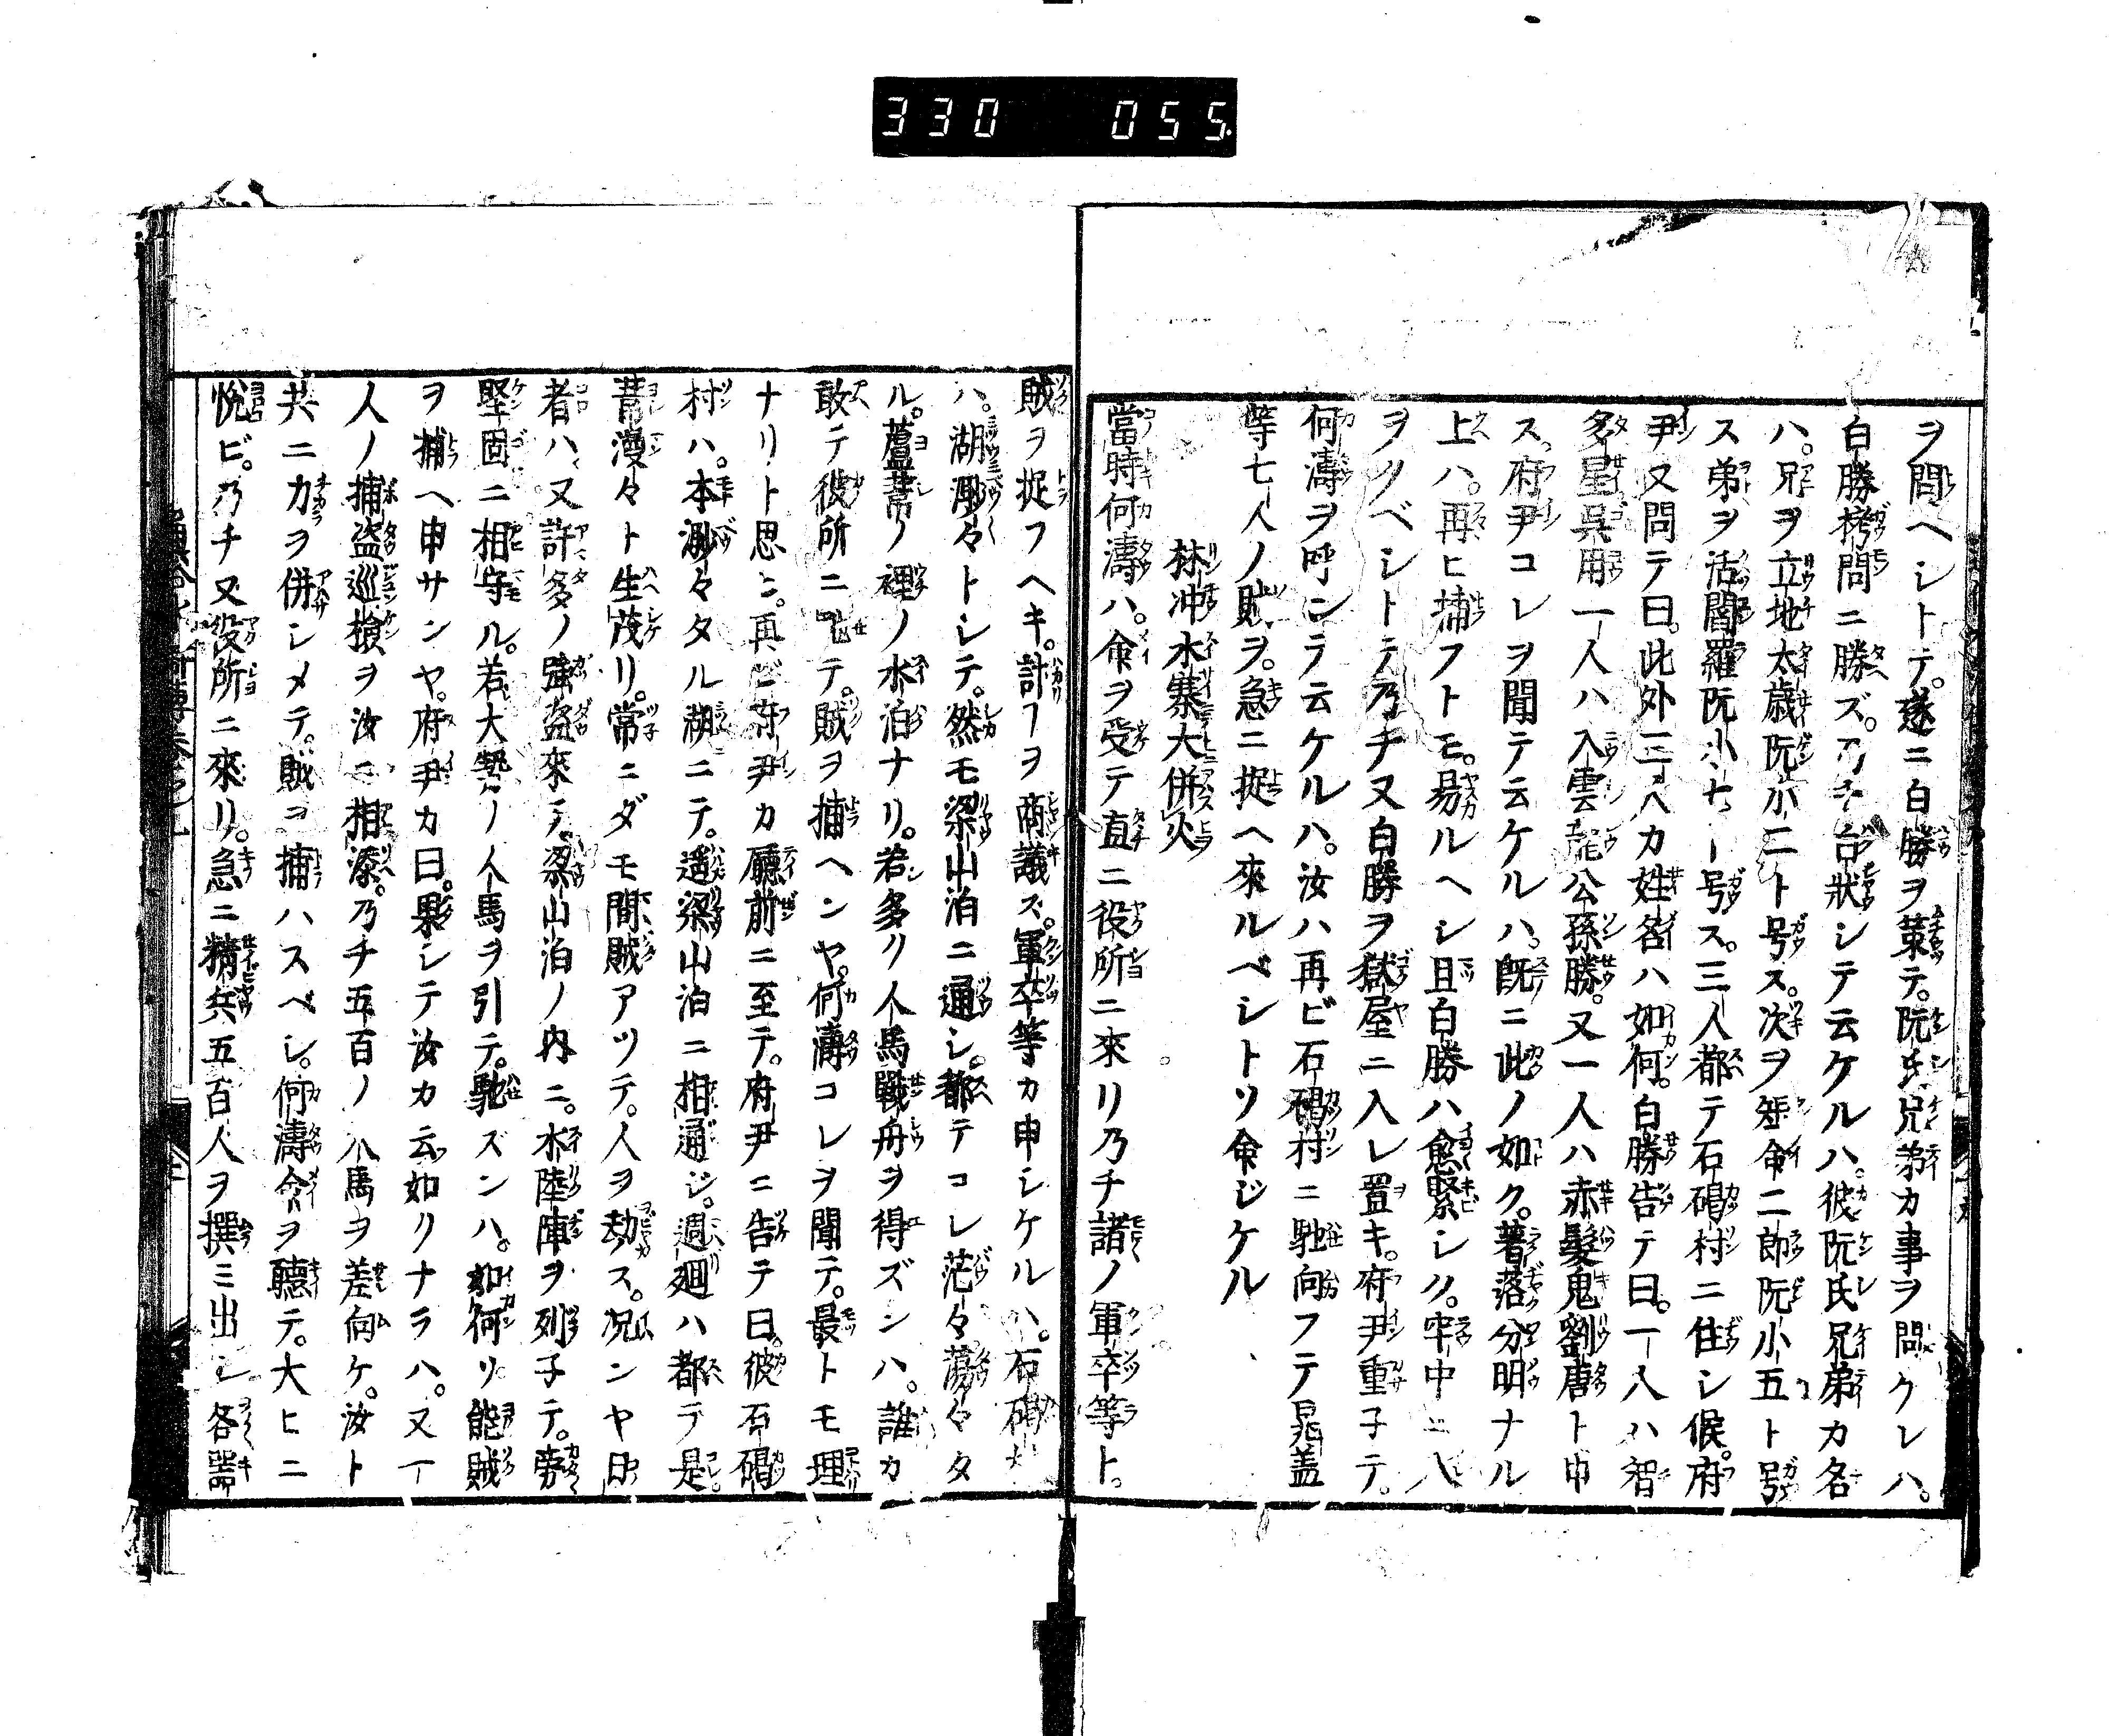 330 055
ヲ問ヘシトテ。遂ニ白勝ヲ策テ。阮氏兄弟カ事ヲ問クレハ。
白勝栲問ニ勝ズ。乃チ台狀シテ云ケルハ。彼阮氏兄弟カ名
ハ。兄ヲ立地太歳阮小二ト号ス。次ヲ短命二郎阮小五ト号
ス弟ヲ活閻羅阮小七ト号ス。三人都テ石碣村ニ住シ候。府
尹又問テ曰。此外三人カ姓名ハ如何。白勝告テ曰。一人ハ智
多星呉用一人ハ入雲龍公孫勝。又一人ハ赤髮鬼劉唐ト申
ス。府尹コレヲ聞テ云ケルハ。既ニ此ノ如ク。著落分明ナル
上ハ。再ヒ捕フトモ。易カルヘシ且白勝ハ愈緊シク。牢中ニ入
ヲクベシトテ乃チ又白勝ヲ獄屋ニ入レ置キ。府尹重子テ。
何濤ヲ呼ンテ云ケルハ。汝ハ再ビ石碣村ニ馳向フテ晁盖
等七人ノ賊ヲ。急ニ捉ヘ來ルベシトソ命ジケル
林冲水寨大併火
當時何濤ハ。命ヲ受テ直ニ役所ニ來リ乃チ諸ノ軍卒等ト。
賊ヲ捉フヘキ。計フヲ商議ス。軍卒等カ申シケルハ。石碣村
ハ。湖渺々トシテ。然モ梁山泊ニ通シ。都テコレ茫々蕩々タ
ル。蘆葦ノ裡ノ水泊ナリ。若多ク人馬戰舟ヲ得ズンハ。誰カ
敢テ彼所ニ馳テ。賊ヲ捕ヘンヤ。何濤コレヲ聞テ。最トモ理
ナリト思ヒ。再ビ府尹カ廳前ニ至テ。府尹ニ告テ曰。彼石碣
村ハ。本渺々タル湖ニテ。遥梁山泊ニ相通ジ。週廻ハ都テ是
葦漫々ト生茂リ。常ニダモ間賊アツテ。人ヲ劫ス。况ンヤ日
者ハ又許多ノ強盗來テ。梁山泊ノ内ニ。水陸陣ヲ列子テ。旁
堅固ニ相守ル。若大勢ノ人馬ヲ引テ。馳ズンハ。如何ソ能賊
ヲ捕ヘ申サンヤ。府尹カ曰。果シテ汝カ云如クナラハ。又一
人ノ捕盗巡検ヲ汝ニ相添。乃チ五百ノ人馬ヲ差向ケ。汝ト
共ニ力ヲ併シメテ。賊ヲ捕ハスベシ。何濤令ヲ聴テ。大ヒニ
悅ビ。乃チ又役所ニ來リ。急ニ精兵五百人ヲ撰ミ出シ各噐